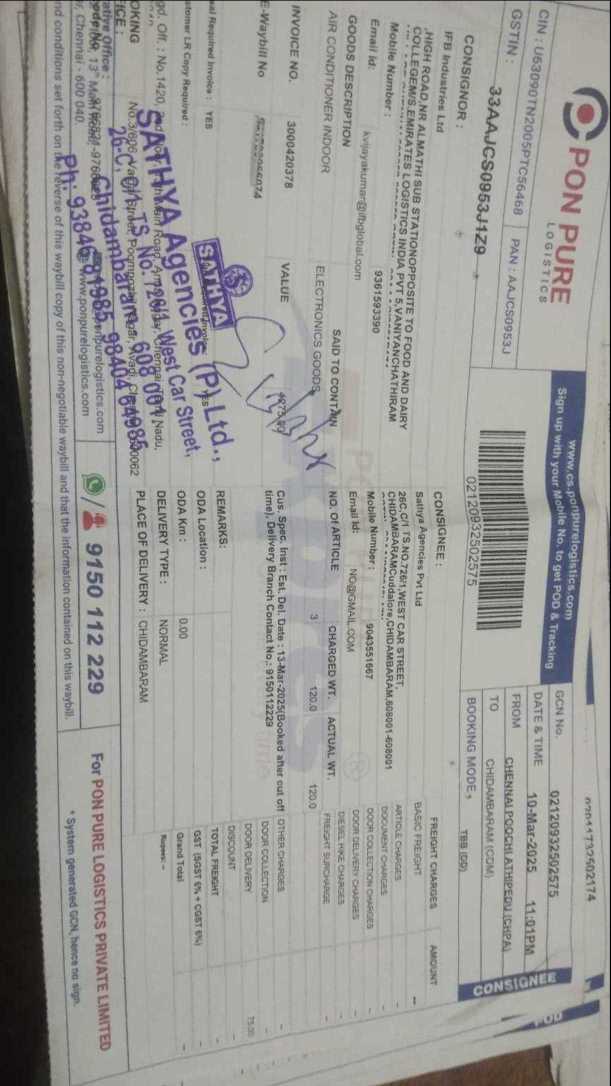 PON PURE
LOGISTICS
CIN : U63090TN2005PTC56468 PAN : AAJCS0953J
GSTIN : 33AAJCS0953J1Z9
www.cs.ponpurelogistics.com
Sign up with your Mobile No. to get POD & Tracking
02120932502575
GCN No. 02120932502575
DATE & TIME 10-Mar-2025 11:01PM
FROM CHENNAI POOCHI ATHIPEDU (CHPA)
TO CHIDAMBARAM (CDM)
BOOKING MODE, TBB (DD)
CONSIGNEE
POD
CONSIGNOR :
IFB Industries Ltd
,HIGH ROAD,NR ALMATHI SUB STATIONOPPOSITE TO FOOD AND DAIRY
COLLEGEM/S.EMIRATES LOGISTICS INDIA PVT 5,VANIYANCHATHIRAM
Mobile Number : 9361593390
Email id: kvijayakumar@ifbglobal.com
CONSIGNEE :
Sathya Agencies Pvt Ltd
26C,C/1 TS NO.726/1,WEST CAR STREET,
CHIDAMBARAMCuddalore,CHIDAMBARAM,608001-608001
Mobile Number : 9043551667
Email Id: NO@GMAIL.COM
GOODS DESCRIPTION SAID TO CONTAIN NO. Of ARTICLE CHARGED WT. ACTUAL WT.
AIR CONDITIONER INDOOR ELECTRONICS GOODS 3 120.0 120.0
INVOICE NO. VALUE
3000420378
E-Waybill No
Cus. Spec. Inst : Est. Del. Date : 13-Mar-2025(Booked after cut off
time), Delivery Branch Contact No.: 9150112229
REMARKS:
ODA Location :
ODA Km : 0.00
DELIVERY TYPE : NORMAL
PLACE OF DELIVERY : CHIDAMBARAM
FREIGHT CHARGES AMOUNT
BASIC FREIGHT --
ARTICLE CHARGES -
DOCUMENT CHARGES -
DOOR COLLECTION CHARGES -
DOOR DELIVERY CHARGES -
DIESEL HIKE CHARGES -
FREIGHT SURCHARGE -
OTHER CHARGES -
DOOR COLLECTION -
DOOR DELIVERY 75.00
DISCOUNT
TOTAL FREIGHT -
GST (SGST 6% + CGST 6%) -
Grand Total --
Rupees: --
Required Invoice : YES
LR Copy Required :
SATHYA
SATHYA Agencies (P) Ltd.,
26-C, C/1, TS No. 726/1, West Car Street,
Chidambaram - 608 001
Ph: 93840 81985, 98404 64985
Chennai - 600 040.
www.ponpurelogistics.com
9150 112 229
For PON PURE LOGISTICS PRIVATE LIMITED
nd conditions set forth on the reverse of waybill copy of this non-negotiable waybill and that the information contained on this waybill.
* System generated GCN, hence no sign.